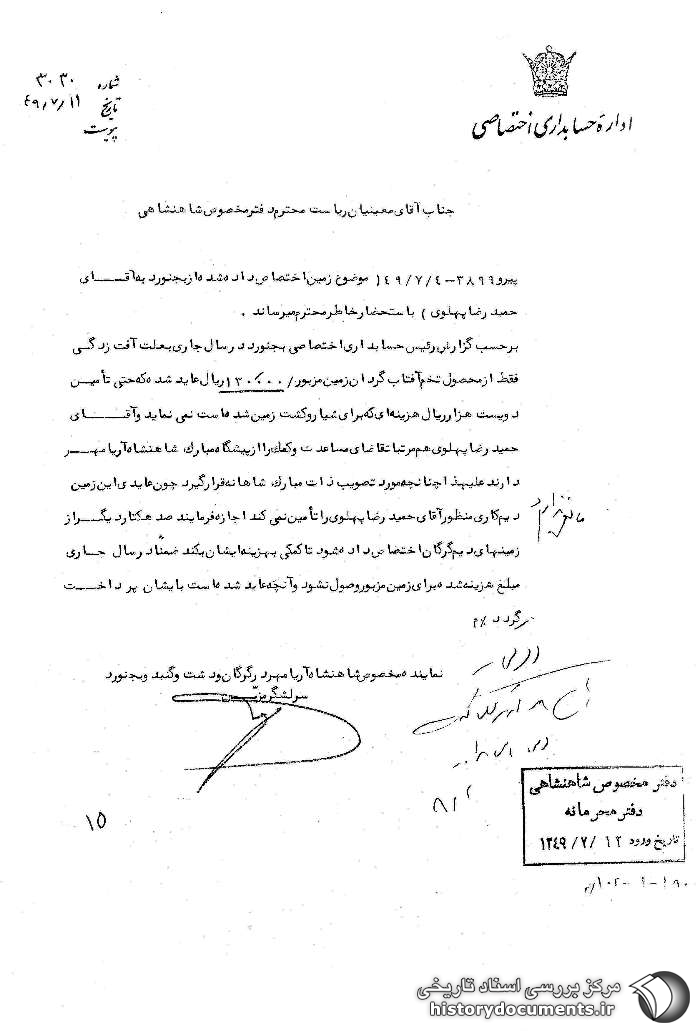 شماره ۳۰۳۰
تاریخ ۴۹/۷/۱۱
پیوست
اداره حسابداری اختصاصی
جناب آقای معینیان ریاست محترم دفتر مخصوص شاهنشاهی
پیرو ۳۸۹۹-۴۹/۷/۴ ( موضوع زمین اختصاص داده شده از بجنورد به آقــــای
حمید رضا پهلوی ) باستحضار خاطر محترم میرساند .
برحسب گزارش رئیس حسابداری اختصاصی بجنورد در سال جاری بعلت آفت زدگـی
فقط از محصول تخم آفتاب گردان زمین مزبور /۱۳۰٬۰۰۰ ریال عاید شده که حتی تأمیـن
دویست هزار ریال هزینه ای که برای شیار و کشت زمین شده است نمی نماید و آقــای
حمید رضا پهلوی هم مرتبا تقاضای مساعدت و کمک را از پیشگاه مبارک شاهنشاه آریا مهــر
دارند علیهذا چنانچه مورد تصویب ذات مبارک شاهانه قرار گیرد چون عایدی این زمین
دیم کاری منظور آقای حمید رضا پهلوی را تأمین نمی کند اجازه فرمایند صد هکتار دیگــر از
زمینهای دیم گرگان اختصاص داده شود تا کمکی بهزینه ایشان بکند ضمناً در سال جـاری
مبلغ هزینه شده برای زمین مزبور وصول نشود و آنچه عاید شده است بایشان پرداخـت
گردد ٪
مانعی ندارد
نماینده مخصوص شاهنشاه آریا مهر در گرگان و دشت و گنبد و بجنورد
سرلشگر مزیــن
۸/۲
۱۵
دفتر مخصوص شاهنشاهی
دفتر محرمانه
تاریخ ورود ۱۲ /۷/ ۱۳۴۹
مرکز بررسی اسناد تاریخی
historydocuments.ir